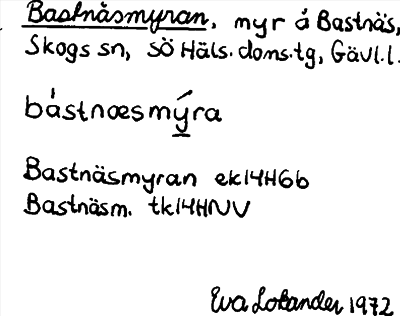 Bastnäsmyran, myr å Bastnäs,
Skogs sn, SÖ Häls. doms.tg, Gävl.l.
bástnæsmýra
Bastnäsmyran ek14H6b
Bastnäsm. tk14HNV
Eva Lolander 1972